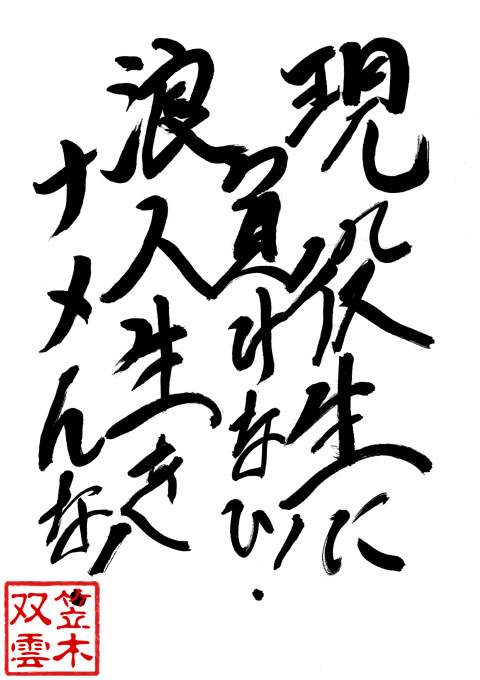 現役生に
負けない!
浪人生を
ナメんな!
笠木
双雲